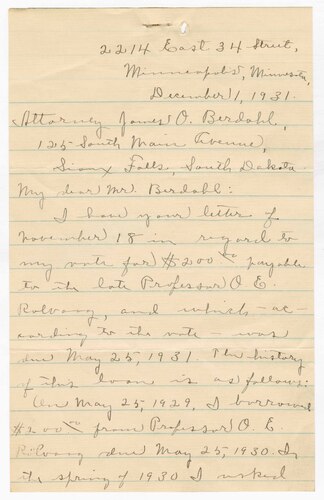 2214 East 34 Street,
Minneapolis, Minnesota,
December 1, 1931.
Attorney James O. Berdahl,
125 South Main Avenue,
Sioux Falls, South Dakota.
My dear Mr. Berdahl:
I have your letter of
November 18 in regard to
my note for $200.00 payable
to the late Professor O. E.
Rolvaag, and which - ac-
cording to the note - was
due May 25, 1931. The history
of this loan is as follows:
On May 25, 1929, I borrowed
$200.00 from Professor O. E.
Rolvaag due May 25, 1930. In
the spring of 1930 I asked